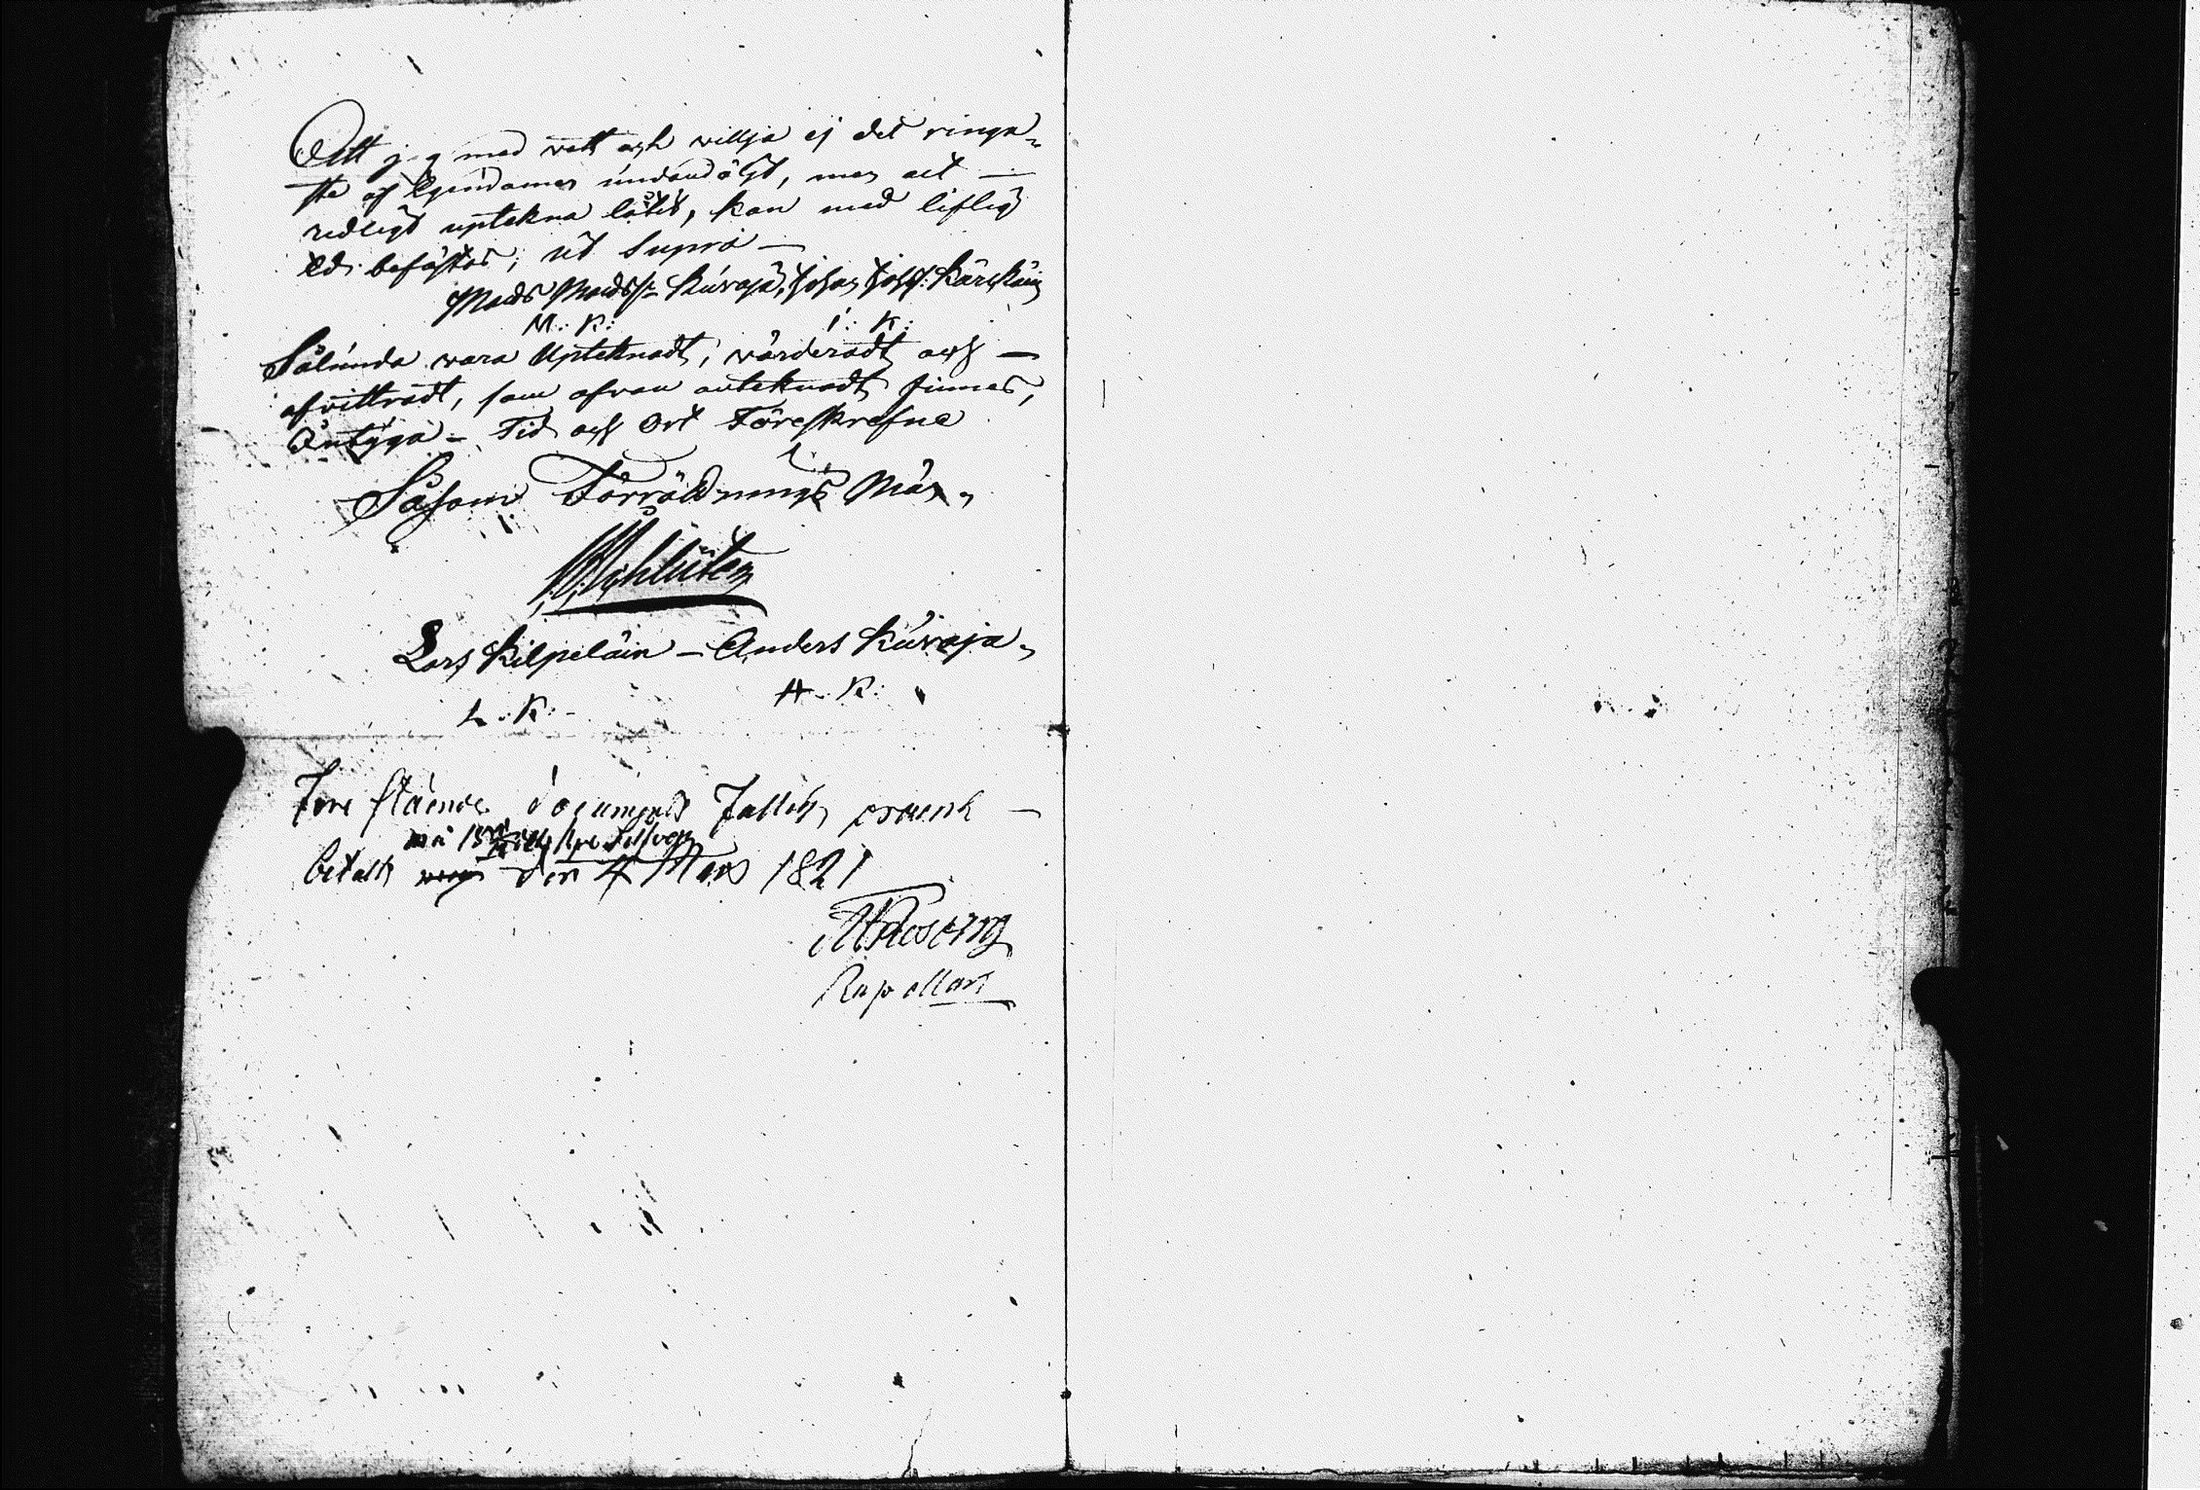 Att jag med vett och willja ej det ringa-
ste af Egendomen undandölgt, men alt —
redligt uptekna låtit, kan med liflig
Ed. befästas; ut Supra —
Mads Madss: Kuvaja, Johan Johss: Kärkkäin
M: K: I: K:
Sålunda vara Upteknadt, värderadt och —
afvittradt, som ofvan anteknadt finnes,
Antyga – Tid och Ort Föreskrefne
Såsom Förrättnings Män,
Lars Kilpeläin – Anders Kuvaja,
L: K: A: K:
Fore stående documents Fattig procent —
med 15
betalt den 4 Mars 1821
Kapellan